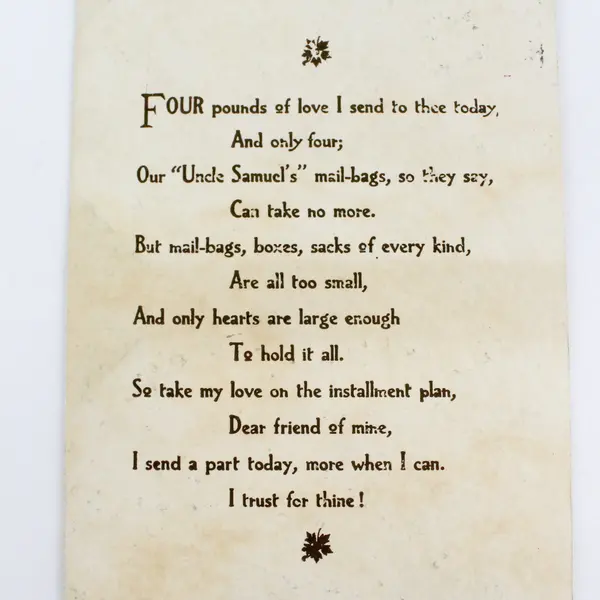 FOUR pounds of love I send to thee today,
And only four;
Our "Uncle Samuel's" mail-bags, so they say,
Can take no more.
But mail-bags, boxes, sacks of every kind,
Are all too small,
And only hearts are large enough
To hold it all.
So take my love on the installment plan,
Dear friend of mine,
I send a part today, more when I can.
I trust for thine!